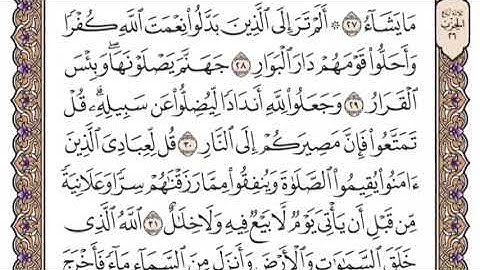 مَا يَشَآءُ ٢٧ ۞ أَلَمْ تَرَ إِلَى ٱلَّذِينَ بَدَّلُوا۟ نِعْمَتَ ٱللَّهِ كُفْرًا
وَأَحَلُّوا۟ قَوْمَهُمْ دَارَ ٱلْبَوَارِ ٢٨ جَهَنَّمَ يَصْلَوْنَهَا ۖ وَبِئْسَ
ٱلْقَرَارُ ٢٩ وَجَعَلُوا۟ لِلَّهِ أَندَادًا لِّيُضِلُّوا۟ عَن سَبِيلِهِۦ ۗ قُلْ
تَمَتَّعُوا۟ فَإِنَّ مَصِيرَكُمْ إِلَى ٱلنَّارِ ٣٠ قُل لِّعِبَادِىَ ٱلَّذِينَ
ءَامَنُوا۟ يُقِيمُوا۟ ٱلصَّلَوٰةَ وَيُنفِقُوا۟ مِمَّا رَزَقْنَـٰهُمْ سِرًّا وَعَلَانِيَةً
مِّن قَبْلِ أَن يَأْتِىَ يَوْمٌ لَّا بَيْعٌ فِيهِ وَلَا خِلَـٰلٌ ٣١ ٱللَّهُ ٱلَّذِى
خَلَقَ ٱلسَّمَـٰوَٰتِ وَٱلْأَرْضَ وَأَنزَلَ مِنَ ٱلسَّمَآءِ مَآءً فَأَخْرَجَ
الحزب
٢٦